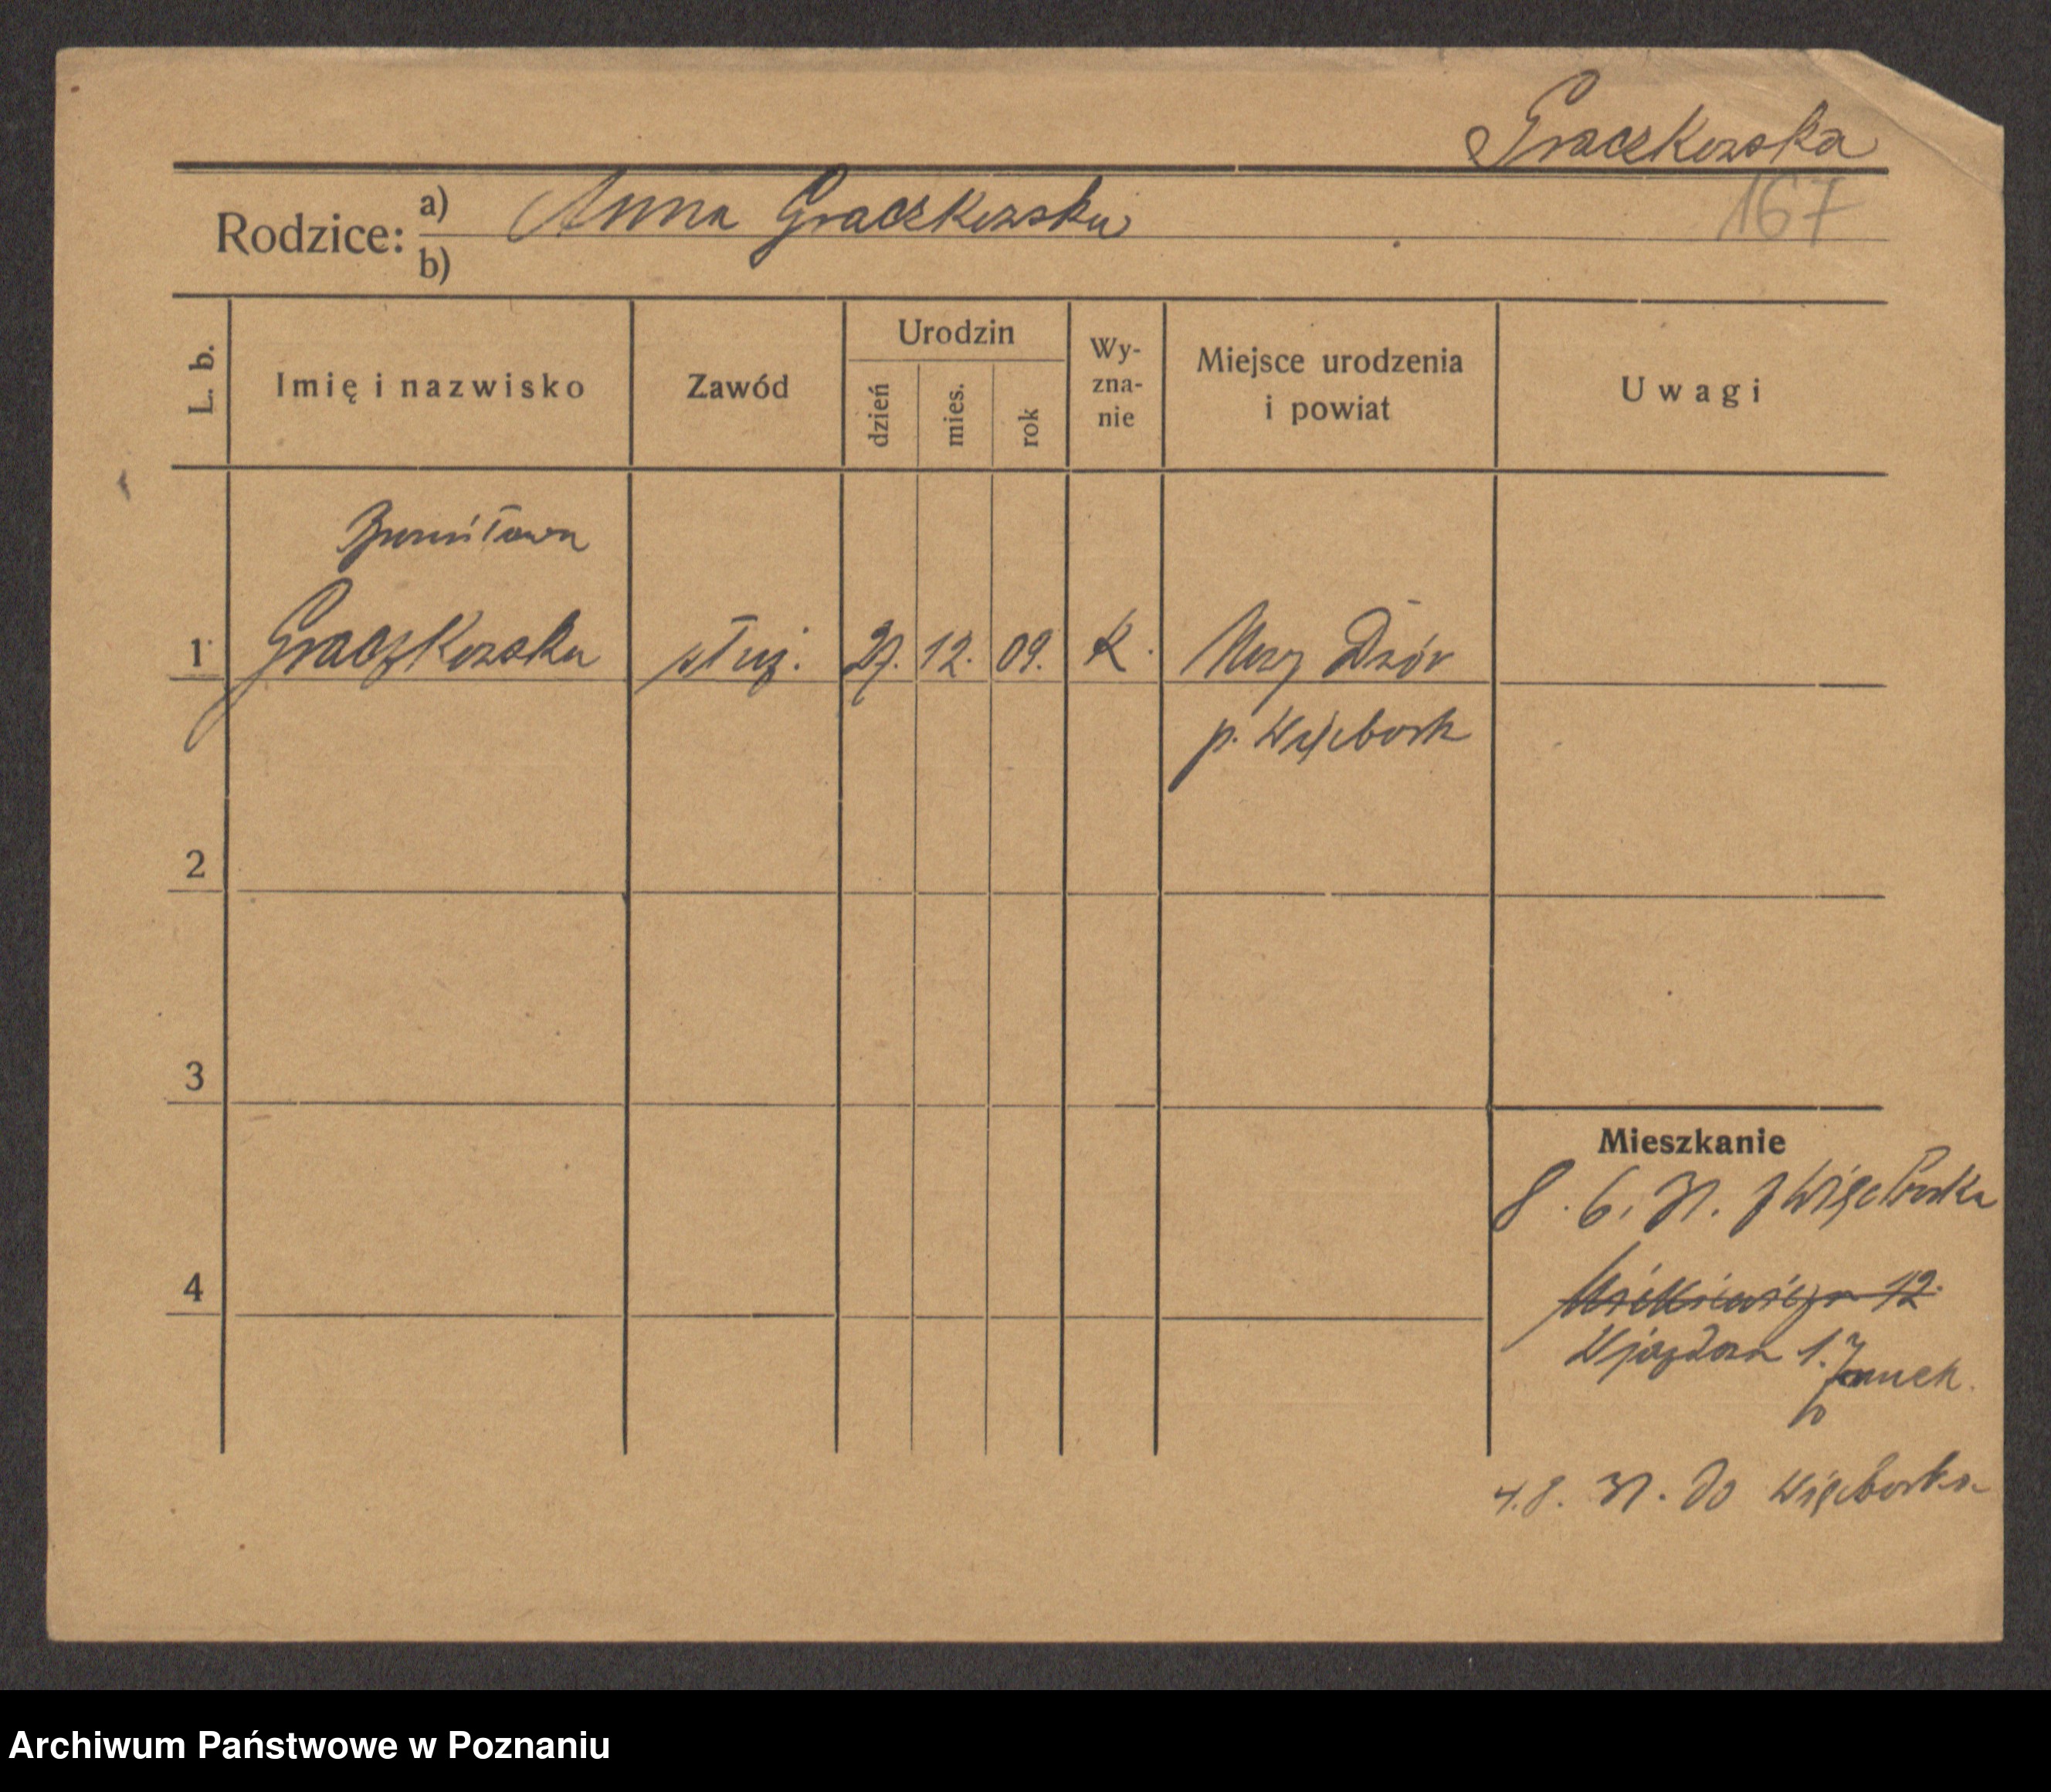 Graczkowska
167
Rodzice: a) Anna Graczkowska
b)
L. b.
Imię i nazwisko
Zawód
Urodzin
dzień
mies.
rok
Wy-
zna-
nie
Miejsce urodzenia
i powiat
Uwagi
Bronisława
1 Graczkowska służ. 27. 12. 09. K. Nowy Dwór
p. Więcbork
2
3
4
Mieszkanie
8. 6. 31. z Więcborka
Mickiewicza 12.
Wjazdowa 1. Zamek.
4.8. 31. do Więcborka
Archiwum Państwowe w Poznaniu